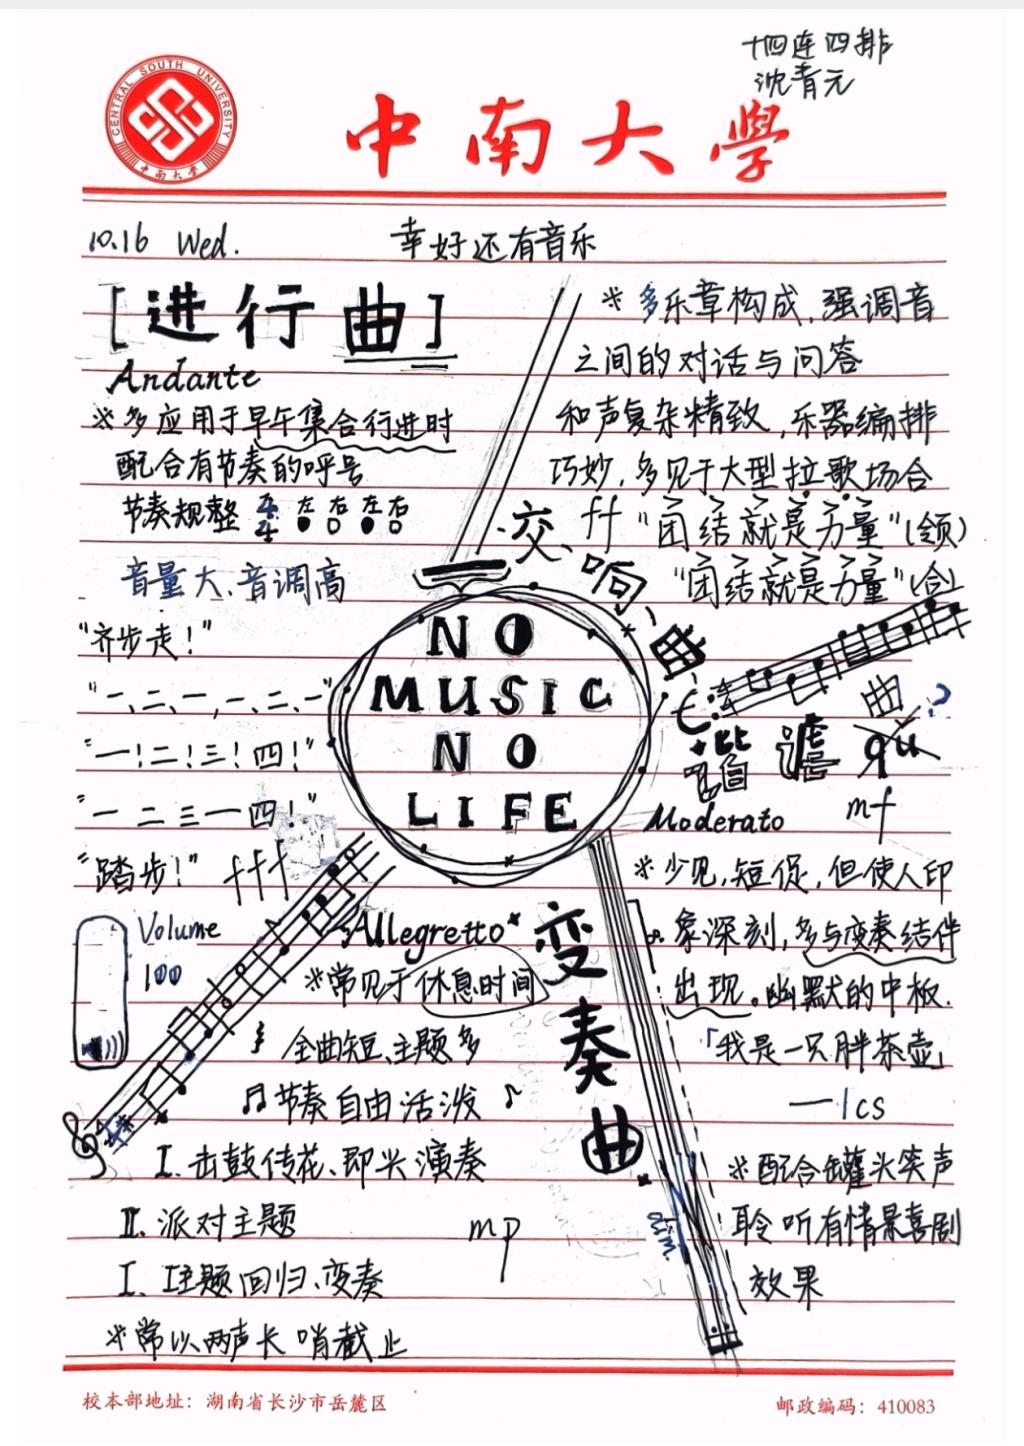 十四连四排
沈青元
CENTRAL SOUTH UNIVERSITY
中南大学
中南大學
10.16 Wed.
幸好还有音乐
[进行曲]
Andante
※多应用于早午集合行进时
配合有节奏的呼号
节奏规整 4/4 左 右 左 右
音量大、音调高
"齐步走！"
"一、二、一，一、二、一"
"一！二！三！四！"
"一 二 三一四！"
"踏步！" fff
Volume
100
※多乐章构成，强调音
之间的对话与问答
和声复杂精致，乐器编排
巧妙，多见于大型拉歌场合
交响曲
ff "团结就是力量"(领)
"团结就是力量"(合)
NO
MUSIC
NO
LIFE
七连
谐谑曲
qu ?
Moderato
mf
※少见，短促，但使人印
象深刻，多与变奏结伴
出现。幽默的中板.
「我是一只胖茶壶」
—lcs
※配合罐头笑声
聆听有情景喜剧
效果
变奏曲
Allegretto
※常见于休息时间
全曲短、主题多
♫节奏自由活泼♪
I. 击鼓传花、即兴演奏
II. 派对主题
mp
I. 主题回归、变奏
※常以两声长哨截止
dim.
校本部地址：湖南省长沙市岳麓区
邮政编码：410083